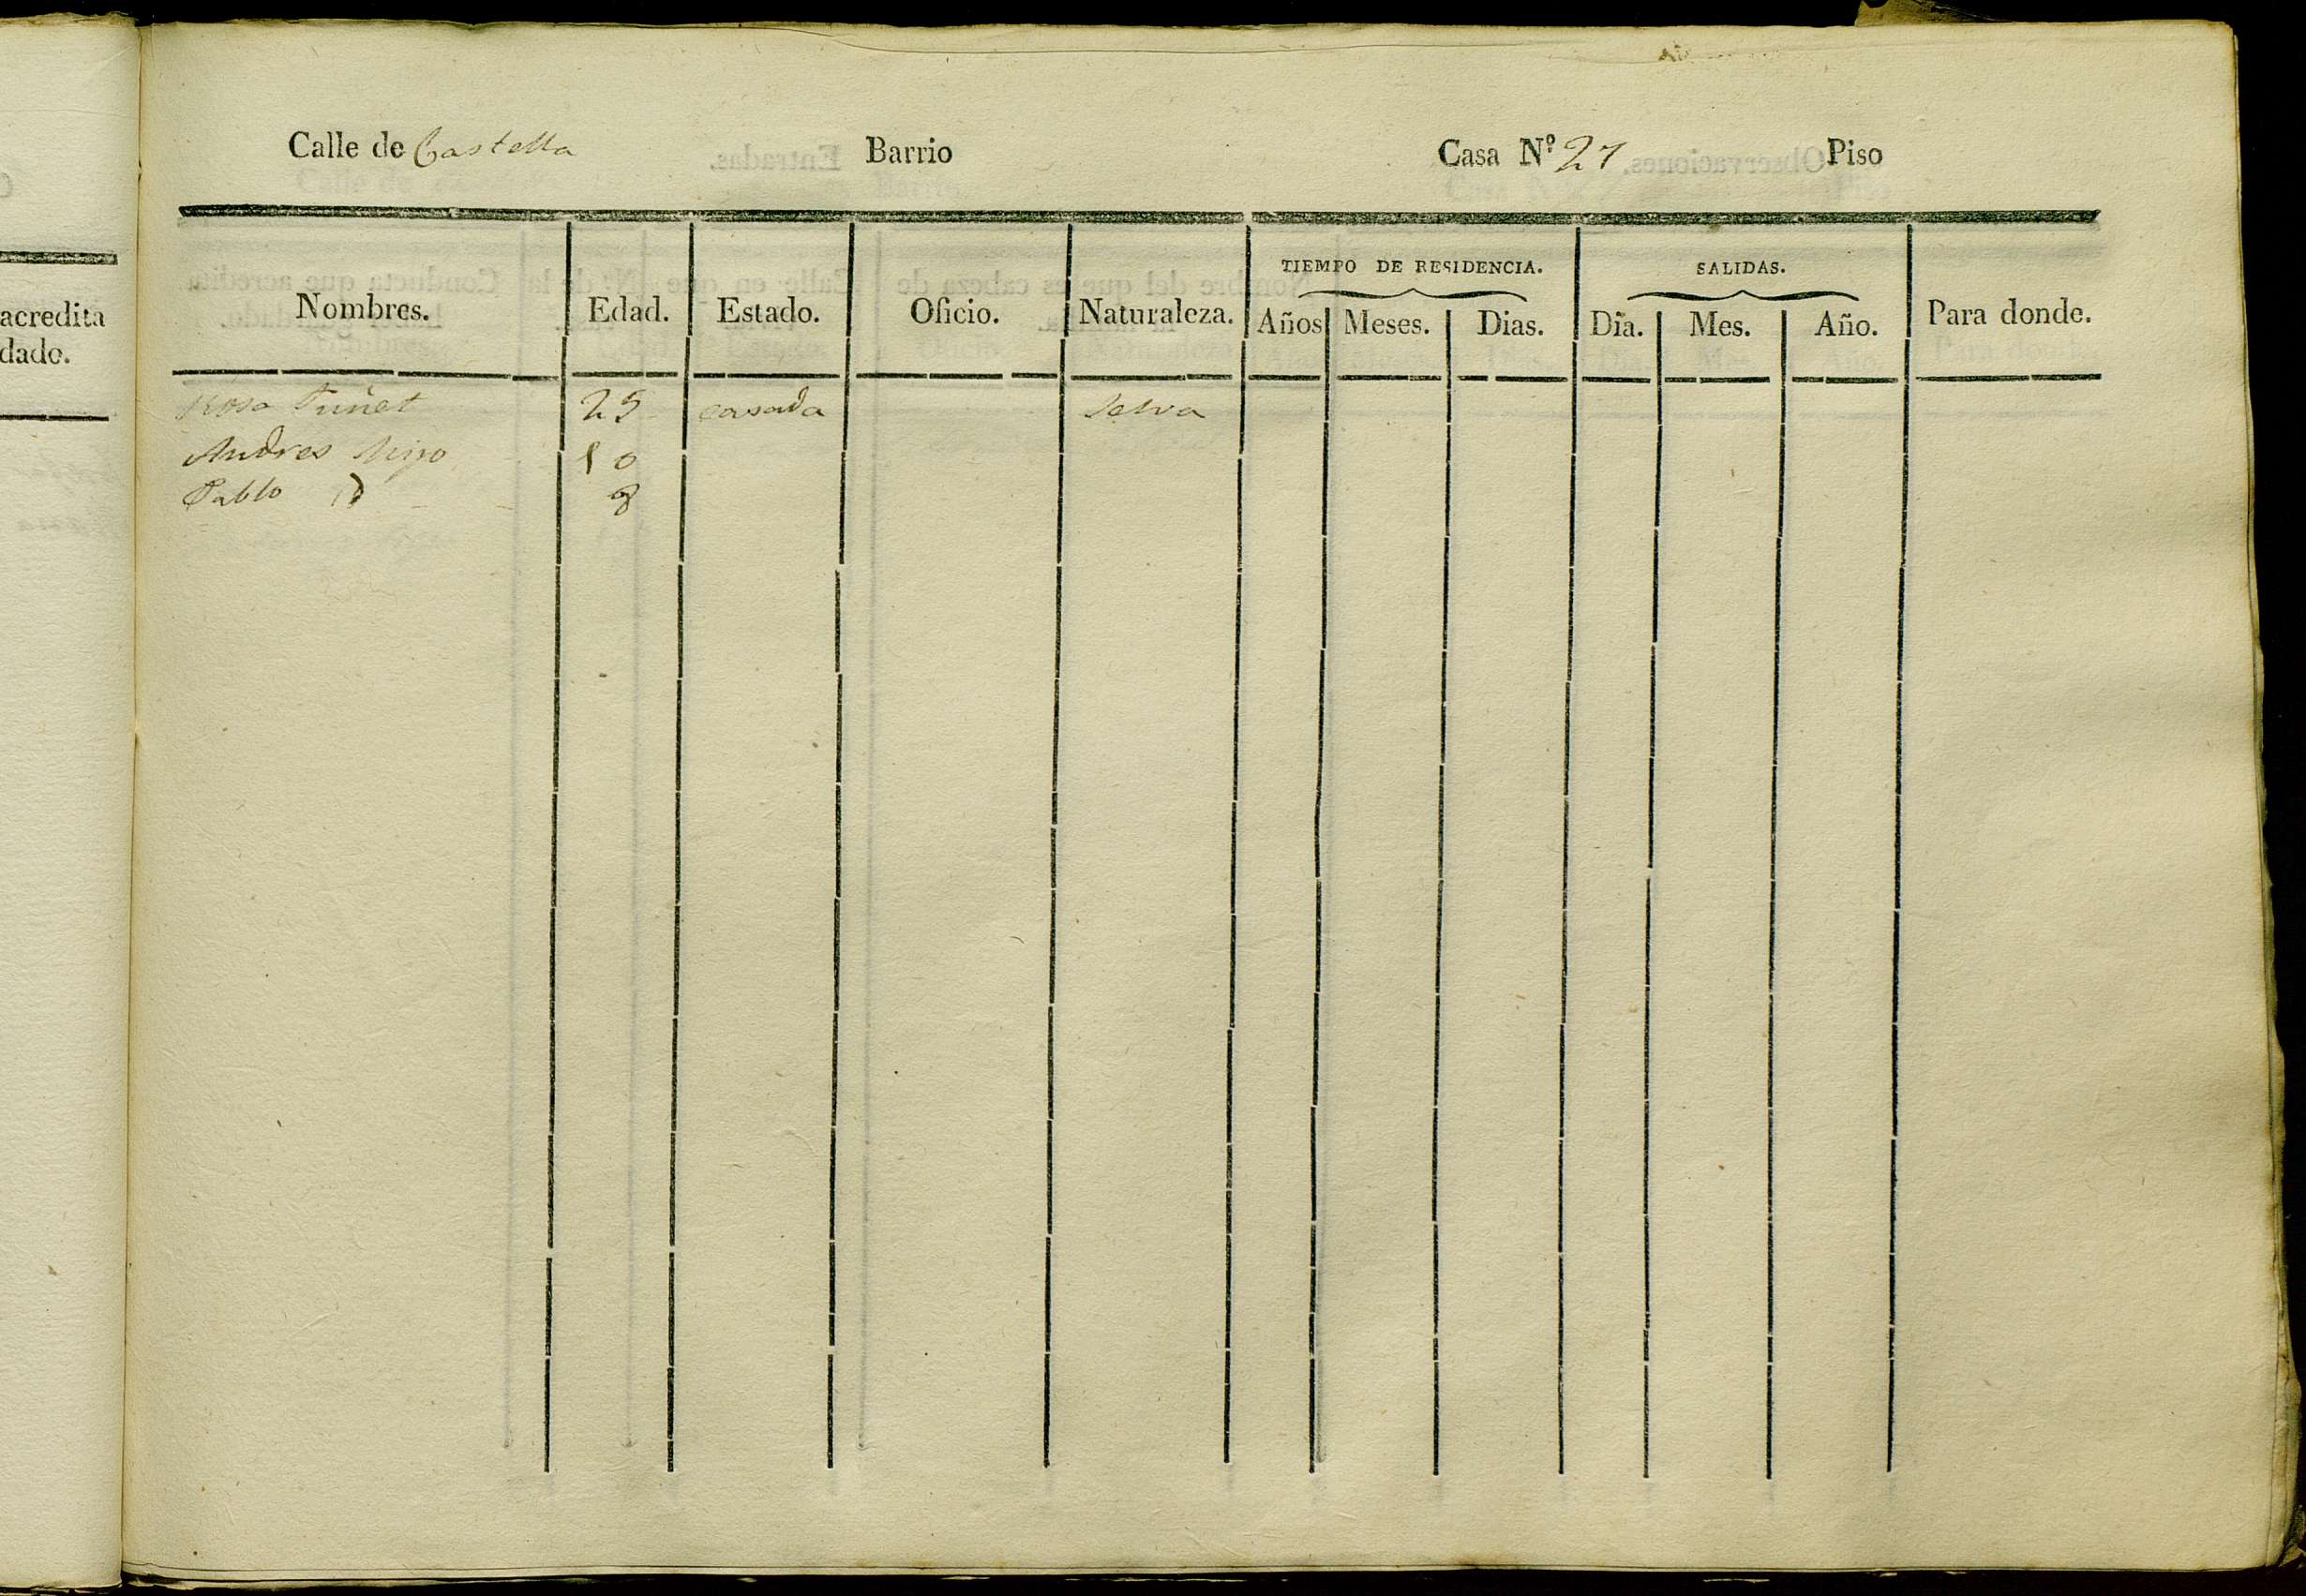 Calle de Castella Barrio Casa Nº 27 Piso
TIEMPO DE RESIDENCIA. SALIDAS.
Nombres. Edad. Estado. Oficio. Naturaleza. Años Meses. Dias. Dia. Mes. Año. Para donde.
Rosa 25 casada Selva
Andres hijo 10
Pablo id 8
acredita
dado.